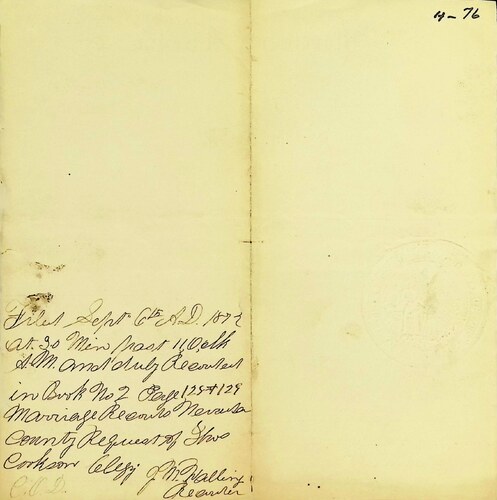 H - 76
Filed Sept 6th A.D. 1872
at 30 Min past 11 Oclk
A.M. and duly Recorded
in Book No 2 Page 128 & 129
Marriage Records Nevada
County Request of Thos
Cookson Clegg
Recorder
C.O.D.